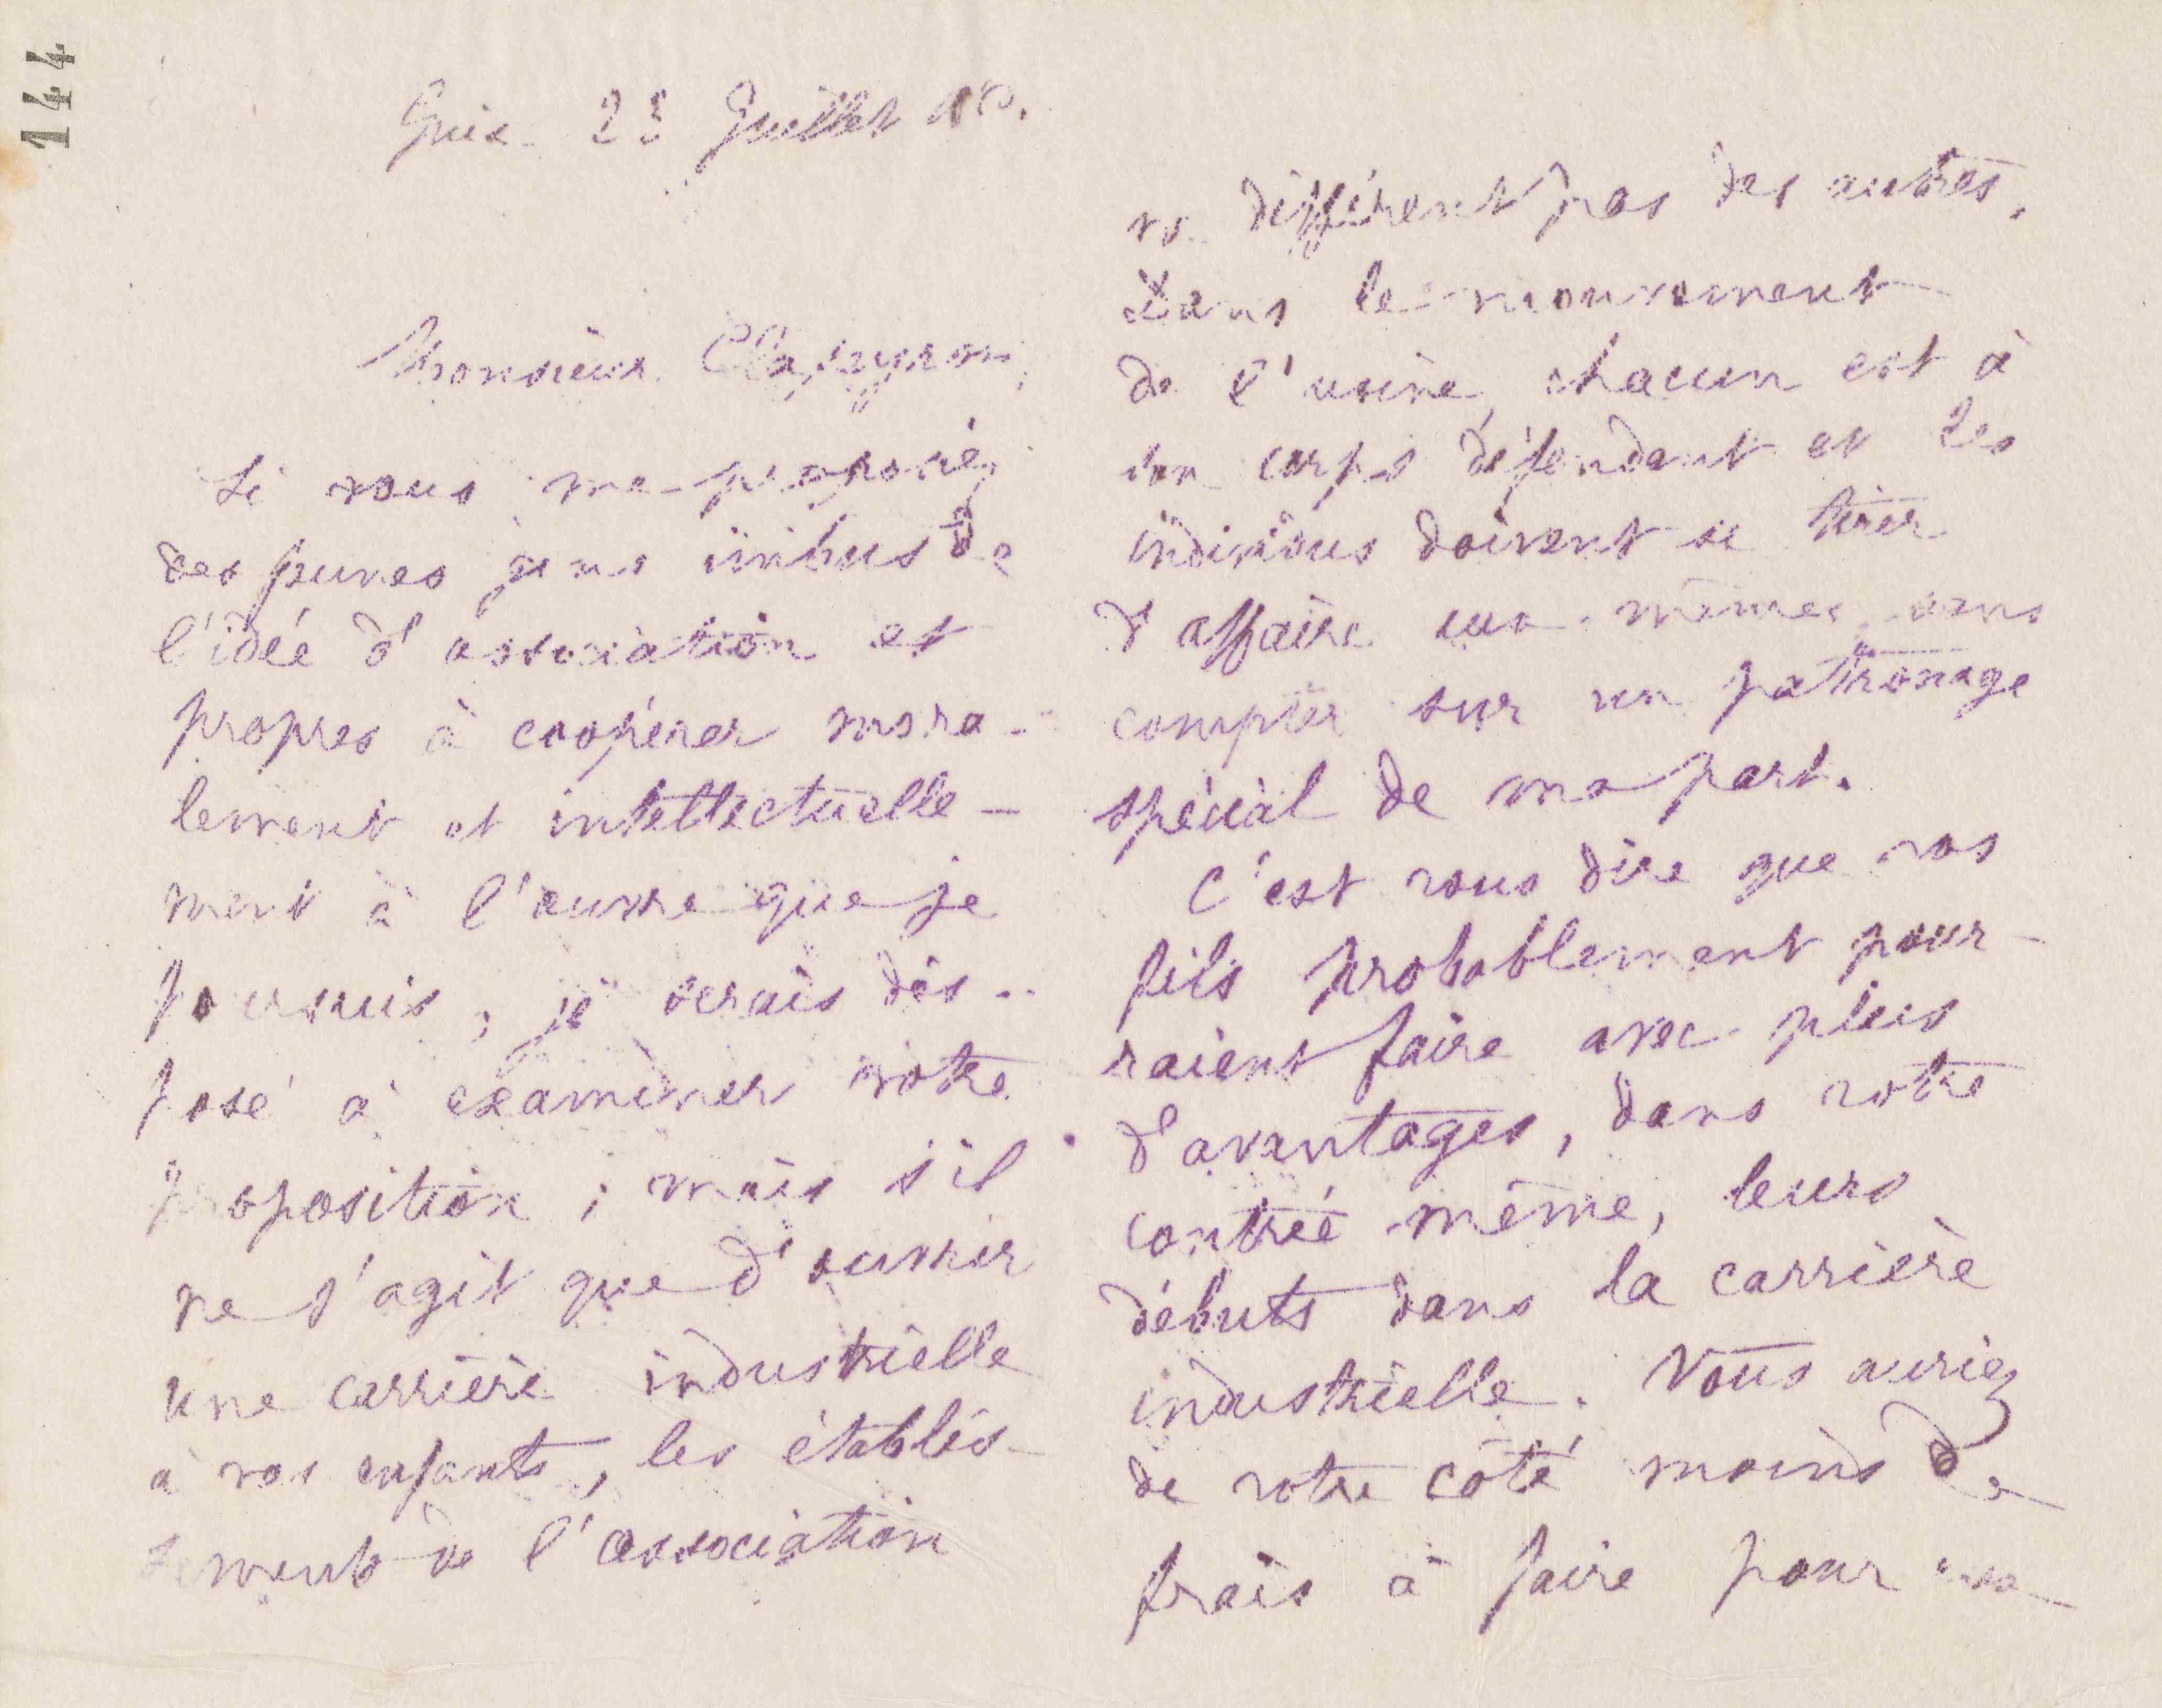 144
Guise 23 Juillet 80.
Monsieur Clapeyron,
Si vous me proposiez
des jeunes gens imbus de
l'idée d'association et
propres à coopérer mora-
lement et intellectuelle-
ment à l'œuvre que je
poursuis, je serais dis-
posé à examiner votre
proposition ; mais s'il
ne s'agit que d'ouvrir
une carrière industrielle
à vos enfants, les établis-
sements de l'association
ne diffèrent pas des autres,
dans le mouvement
de l'usine, chacun est à
son corps défendant et les
individus doivent se tirer
d'affaire eux-mêmes, sans
compter sur un patronage
spécial de ma part.
C'est vous dire que vos
fils probablement pour-
raient faire avec plus
d'avantages, dans votre
contrée même, leurs
débuts dans la carrière
industrielle. Vous auriez
de votre côté moins de
frais à faire pour